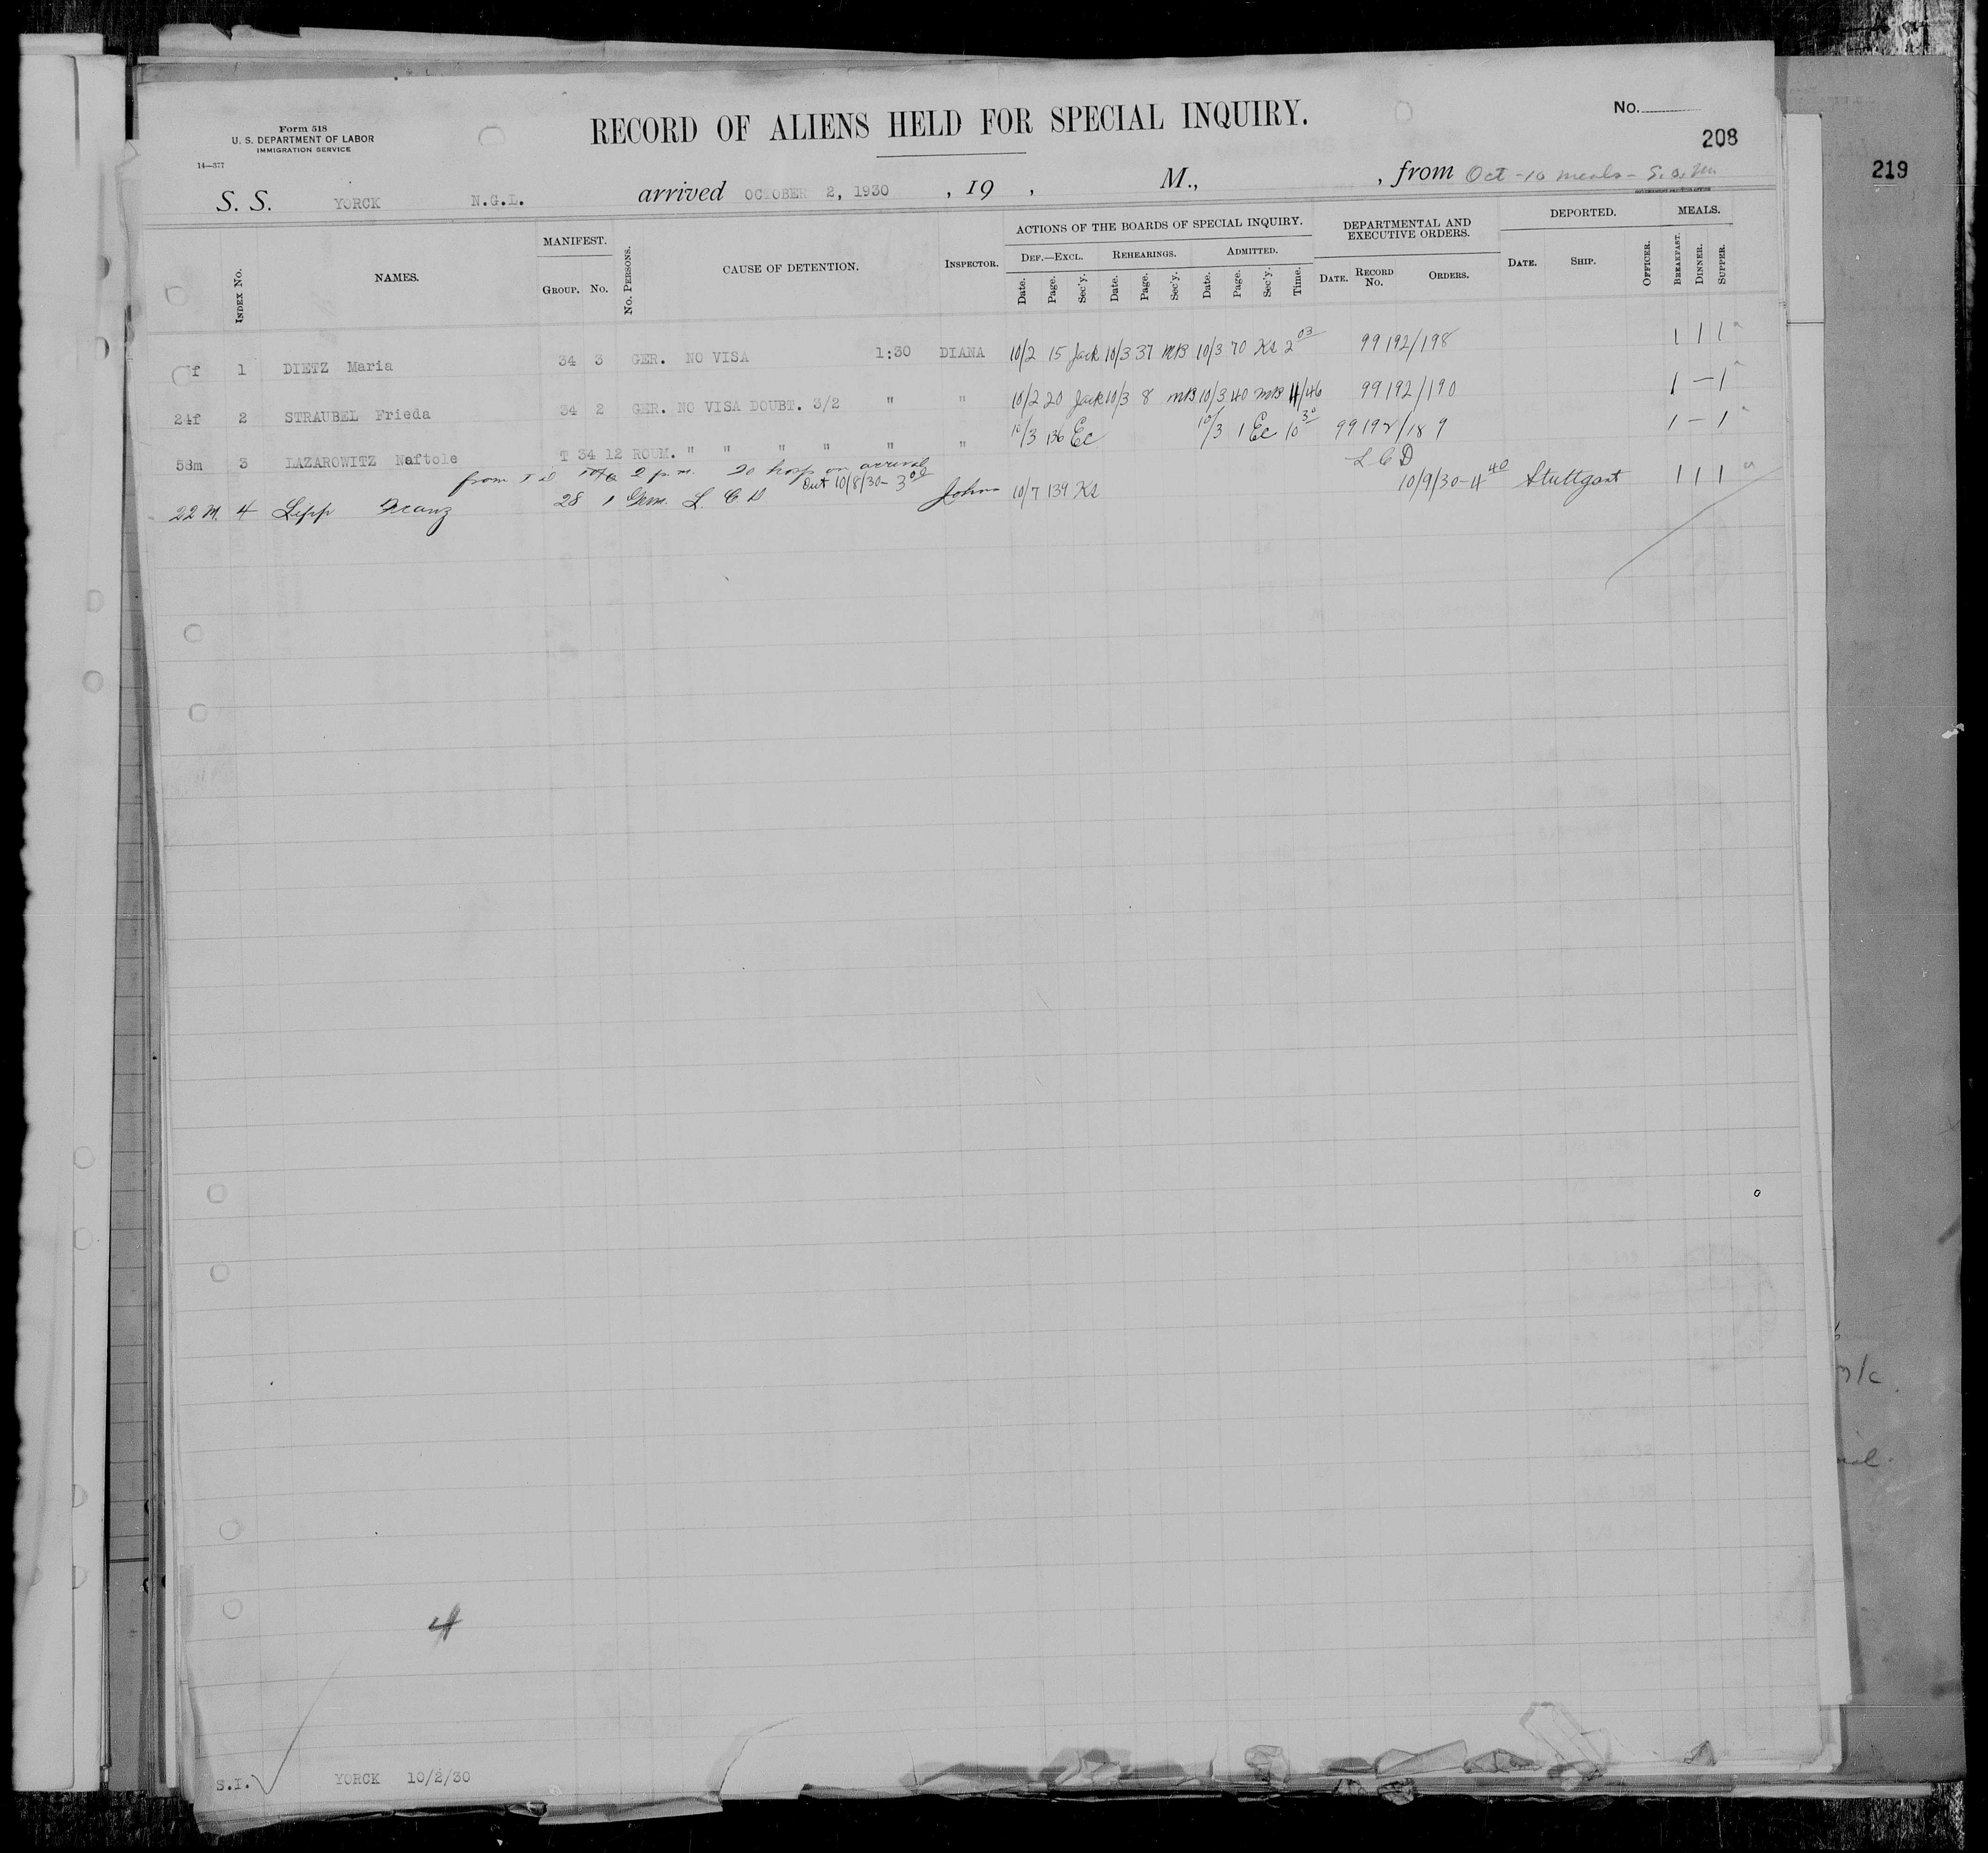 Form 518
U. S. DEPARTMENT OF LABOR
IMMIGRATION SERVICE
14—577
RECORD OF ALIENS HELD FOR SPECIAL INQUIRY.
No.
208
219
S. S. YORCK N.G.L. arrived OCTOBER 2, 1930 , 19 , M., , from Oct - 10 meals -
INDEX No. NAMES. MANIFEST. GROUP. No. No. PERSONS. CAUSE OF DETENTION. INSPECTOR. ACTIONS OF THE BOARDS OF SPECIAL INQUIRY. DEF.—EXCL. Date. Page. Sec'y. REHEARINGS. Date. Page. Sec'y. ADMITTED. Date. Page. Sec'y. Time. DEPARTMENTAL AND EXECUTIVE ORDERS. DATE. RECORD No. ORDERS. DEPORTED. DATE. SHIP. OFFICER. MEALS. BREAKFAST. DINNER. SUPPER.
f 1 DIETZ Maria 34 3 GER. NO VISA 1:30 DIANA 10/2 15 Jack 10/3 37 MB 10/3 70 KS 2 03 99192/198 1 1 1
24f 2 STRAUBEL Frieda 34 2 GER. NO VISA DOUBT. 3/2 " " 10/2 20 Jack 10/3 8 MB 10/3 40 MB 11/46 99192/190 1 — 1
58m 3 LAZAROWITZ Naftole T 34 12 ROUM. " " " " " " 10/3 136 Ec 10/3 1 Ec 10 30 99192/189 1 — 1
from T D 2 p.m. To hosp on arrival
Out 10/8/30 - 3 L C D
22 M. 4 Lipp Franz 28 1 Germ. L. C D Johns 10/7 139 KS 10/9/30 - 4 40 Stuttgart 1 1 1
4
S.I. YORCK 10/2/30